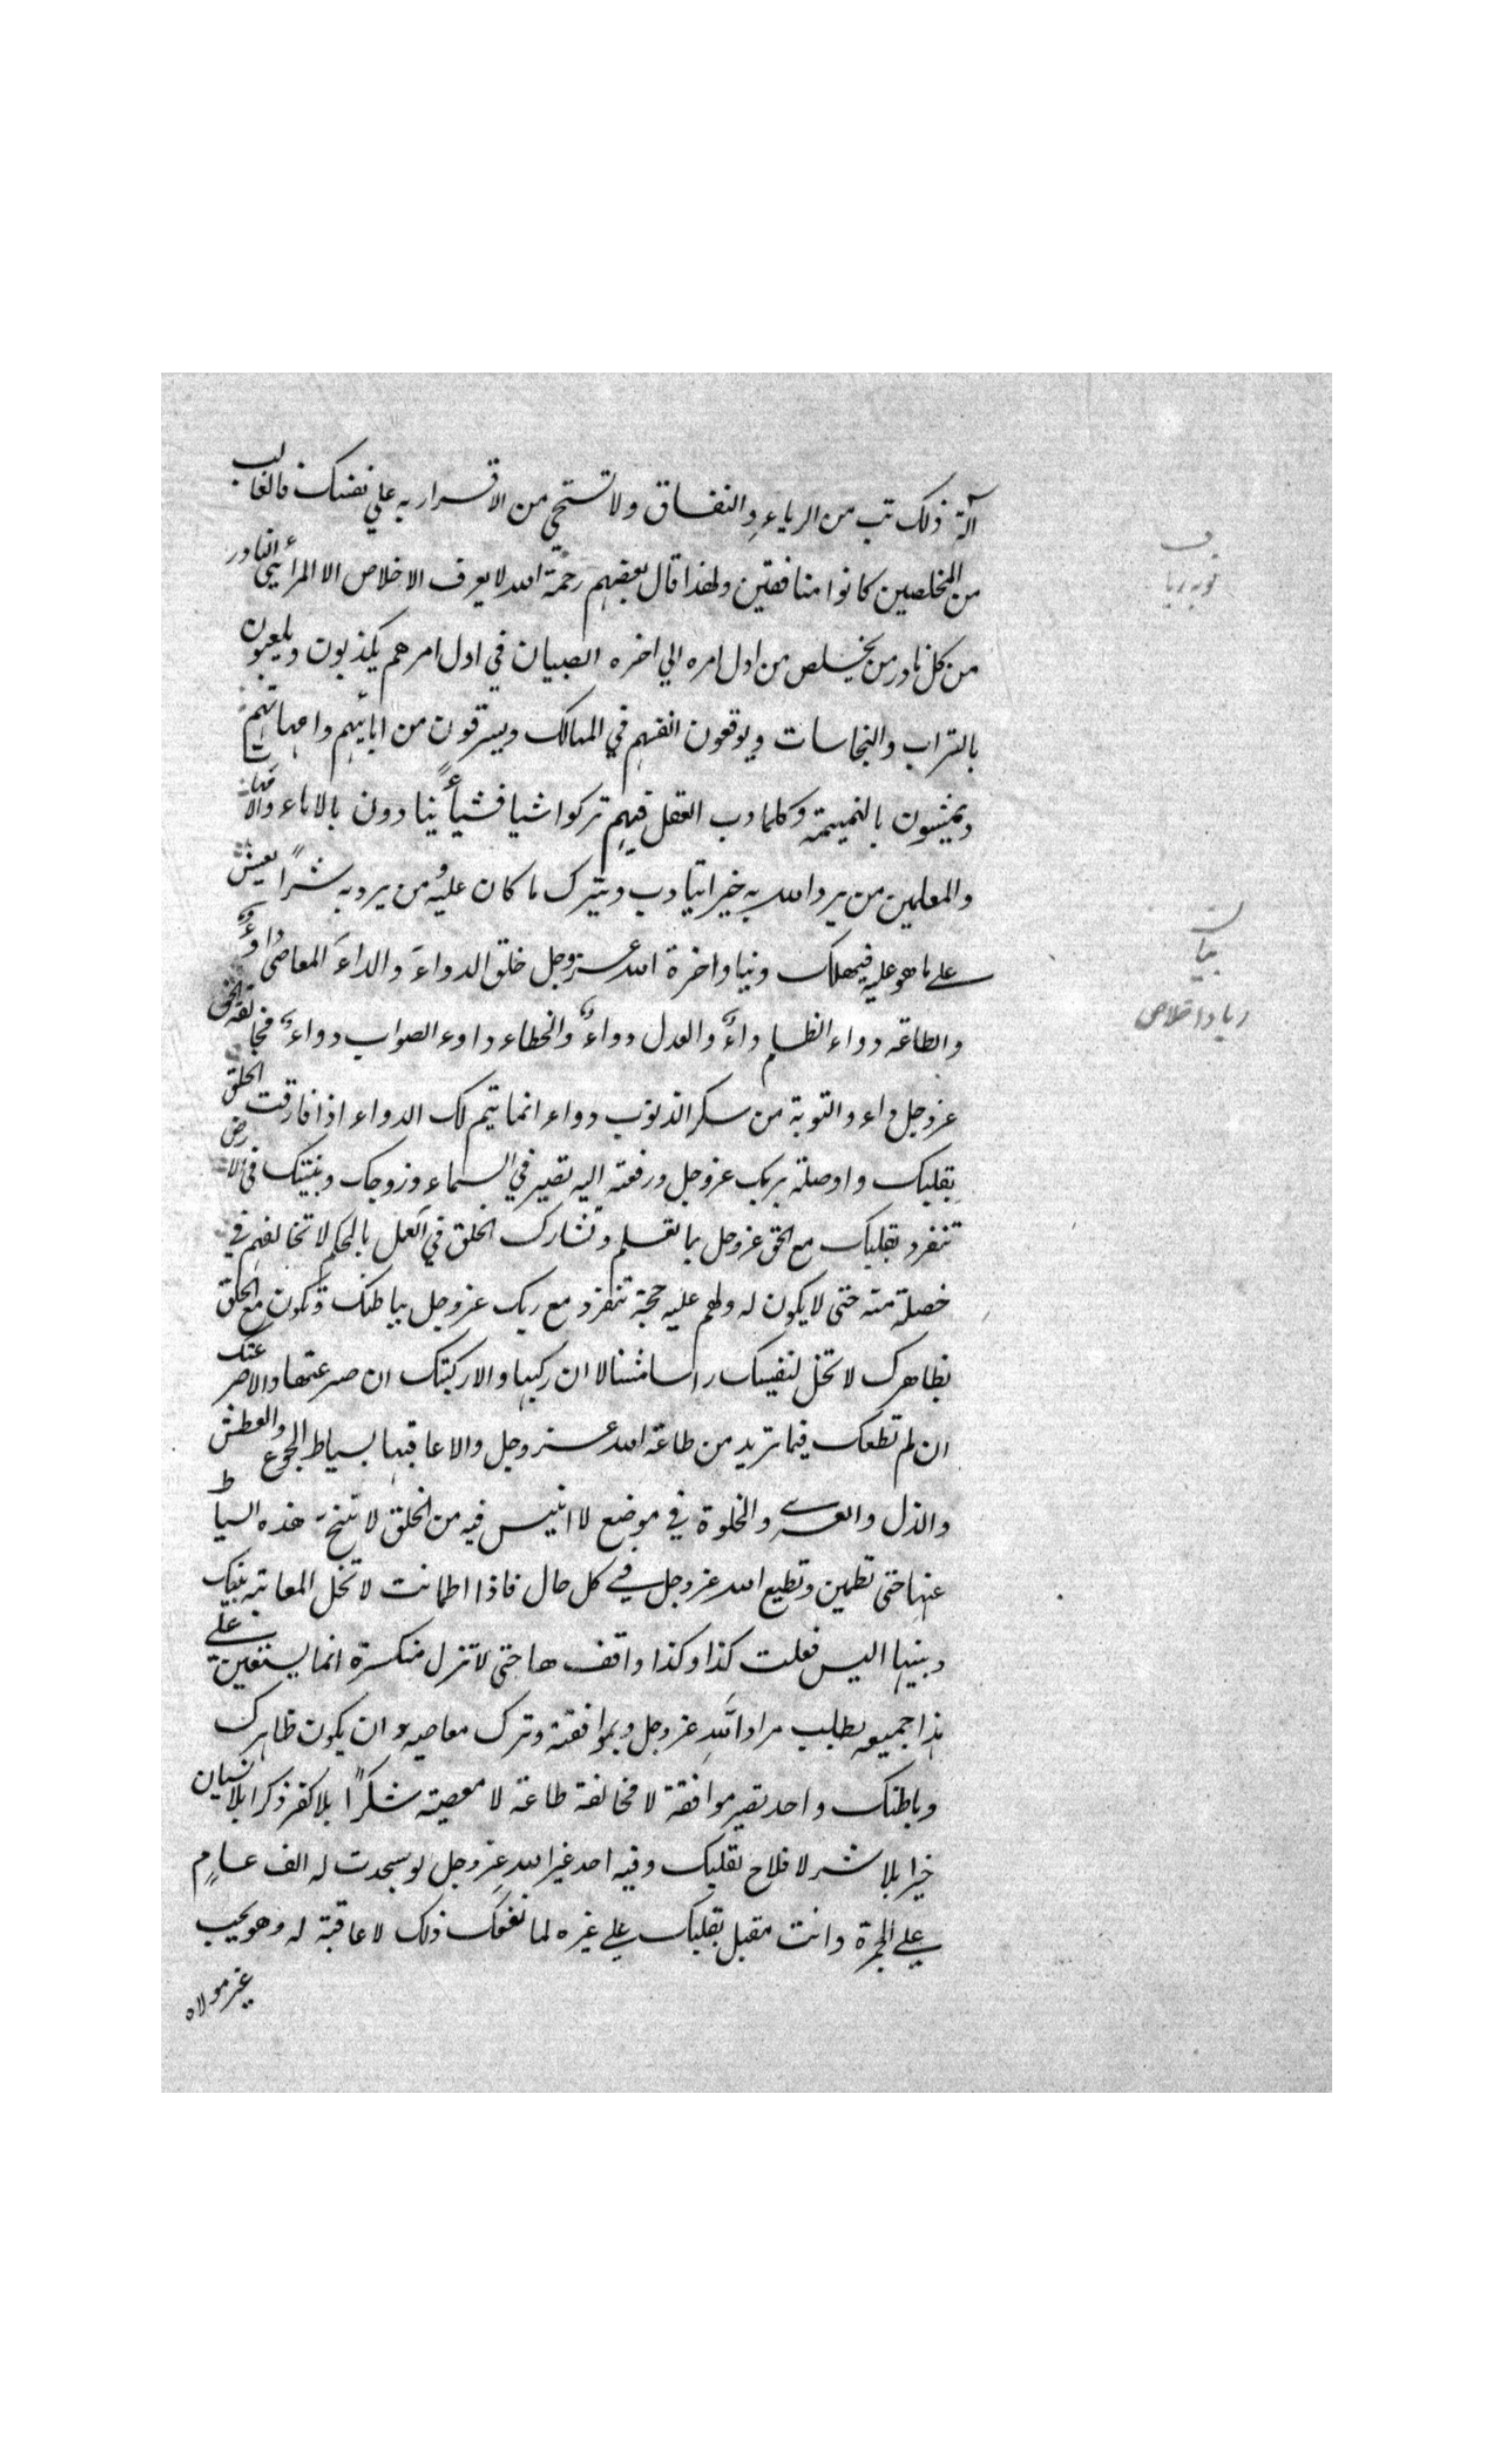 آلة ذلك تب من الرياء والنفاق ولا تستحي من الاقرار به علي نفسك فالغالب
من المخلصين كانوا منافقين ولهذا قال بعضهم رحمة الله لا يعرف الاخلاص الا المرائي النادر
من كل نادر من يخلص من اول امره الي اخره الصبيان في اول امرهم يكذبون ويلعبون
بالتراب والنجاسات ويوقعون انفسهم في المهالك ويسرقون من ابائهم وامهاتهم
ويمشون بالنميمة وكلما دب العقل فيهم تركوا شيا فشيأً يتادون بالاباء والامهات
والمعلمين من يرد الله به خيرا يتادب ويترك ما كان عليه ومن يرد به شراً يعيش
علے ما هو عليه فيهلك دنيا واخرة الله عز وجل خلق الدواءَ والداءَ المعاصي داءٌ
والطاعة دواء الظلم داءٌ والعدل دواءٌ والخطاء داوء الصواب دواءٌ مخالفة الحق
عز وجل داء والتوبة من سكر الذنوب دواء انما يتم لك الدواء اذا فارقت الخلق
بقلبك واوصلته بربك عز وجل ورفعته اليه تصير في السماء وزوجك وبنيتك في الارض
تنفرد بقلبك مع الحق عز وجل بما تعلم وتشارك الخلق في العمل بالحكم لا تخالفهم في
خصلة منه حتى لا يكون له ولهم عليه حجة تنفرد مع ربك عز وجل بباطنك وتكون مع الخلق
بظاهرك لا تخل لنفسك راسا مثنالا ان ركبها والا ركبتك ان صرعتها والا صرعتك
ان لم تطعك فيما تريد من طاعة الله عز وجل والا عاقبها بسياط الجوع والعطش
والذل والعرے والخلوة في موضع لا انيس فيه من الخلق لا تنح هذه السياط
عنها حتى تطمين وتطيع الله عز وجل في كل حال فاذا اطمانت لا تخل المعاتبة بينك
وبينها اليس فعلت كذا وكذا واقف ها حتى لا تزل منكسرة انما يستعين علے
هذا جميعه بطلب مراد الله عز وجل وبموافقته وترك معاصيه و ان يكون ظاهرك
وباطنك واحد تصير موافقة لا مخالفة طاعة لا معصية شكرًا بلا كفر ذكرا بلا نسيان
خيرا بلا شر لا فلاح لقلبك وفيه احد غير الله عز وجل لو سجدت له الف عامٍ
علے الجمرة وانت مقبل بقلبك علے غيره لما نفعك ذلك لا عاقبة له وهو يحب
غير مولاه
ف
توبه ريا
بيان
ريا واخلاص